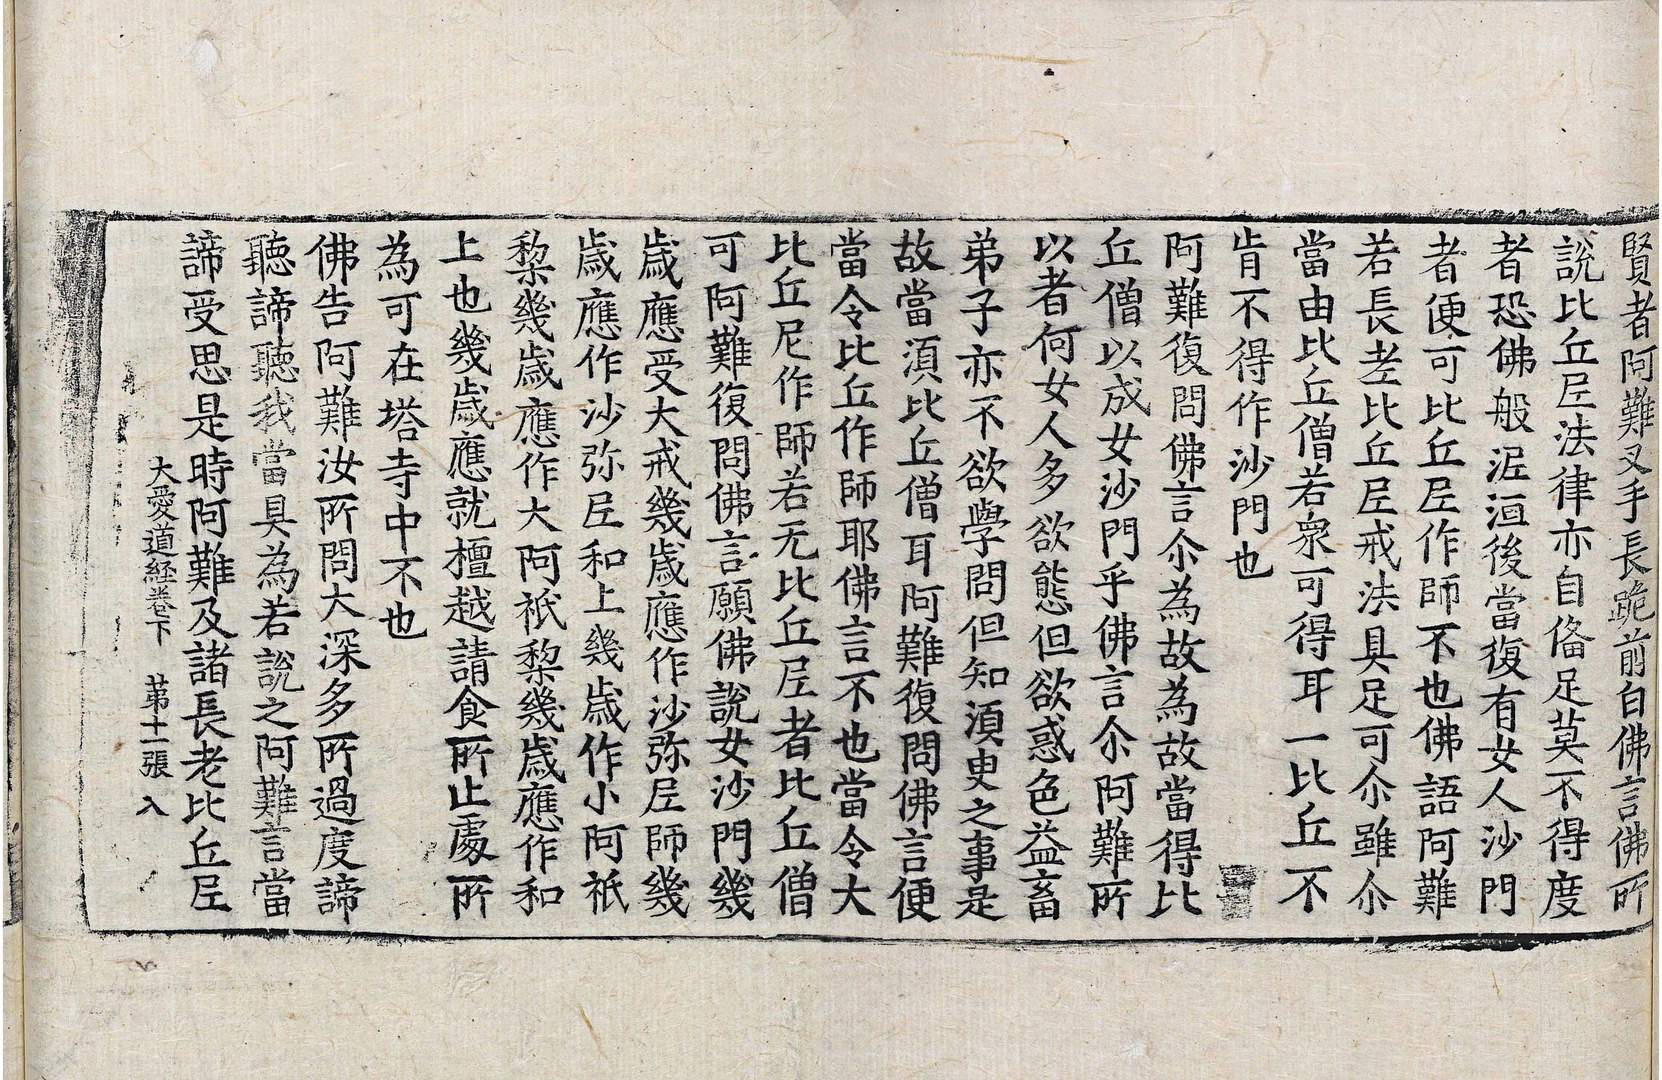 賢者阿難叉手長跪前白佛言佛所
說比丘𡰱法律亦自俻足莫不得度
者恐佛般泥洹後當復有女人沙門
者便可比丘𡰱作師不也佛語阿難
若長老比丘𡰱戒法具足可尒雖尒
當由比丘僧若衆可得耳一比丘不
肯不得作沙門也
阿難復問佛言尒為故為故當得比
丘僧以成女沙門乎佛言尒阿難所
以者何女人多欲態但欲惑色益畜
弟子亦不欲學問但知湏臾之事是
故當湏比丘僧耳阿難復問佛言便
當令比丘作師耶佛言不也當令大
比丘尼作師若无比丘𡰱者比丘僧
可阿難復問佛言願佛說女沙門幾
歲應受大戒幾歲應作沙弥𡰱師幾
歲應作沙弥𡰱和上幾歲作小阿祇
梨幾歲應作大阿祇梨幾歲應作和
上也幾歲應就檀越請食所止處所
為可在塔寺中不也
佛告阿難汝所問大深多所過度諦
聽諦聽我當具為若說之阿難言當
諦受思是時阿難及諸長老比丘𡰱
大愛道經卷下 苐十一張 入